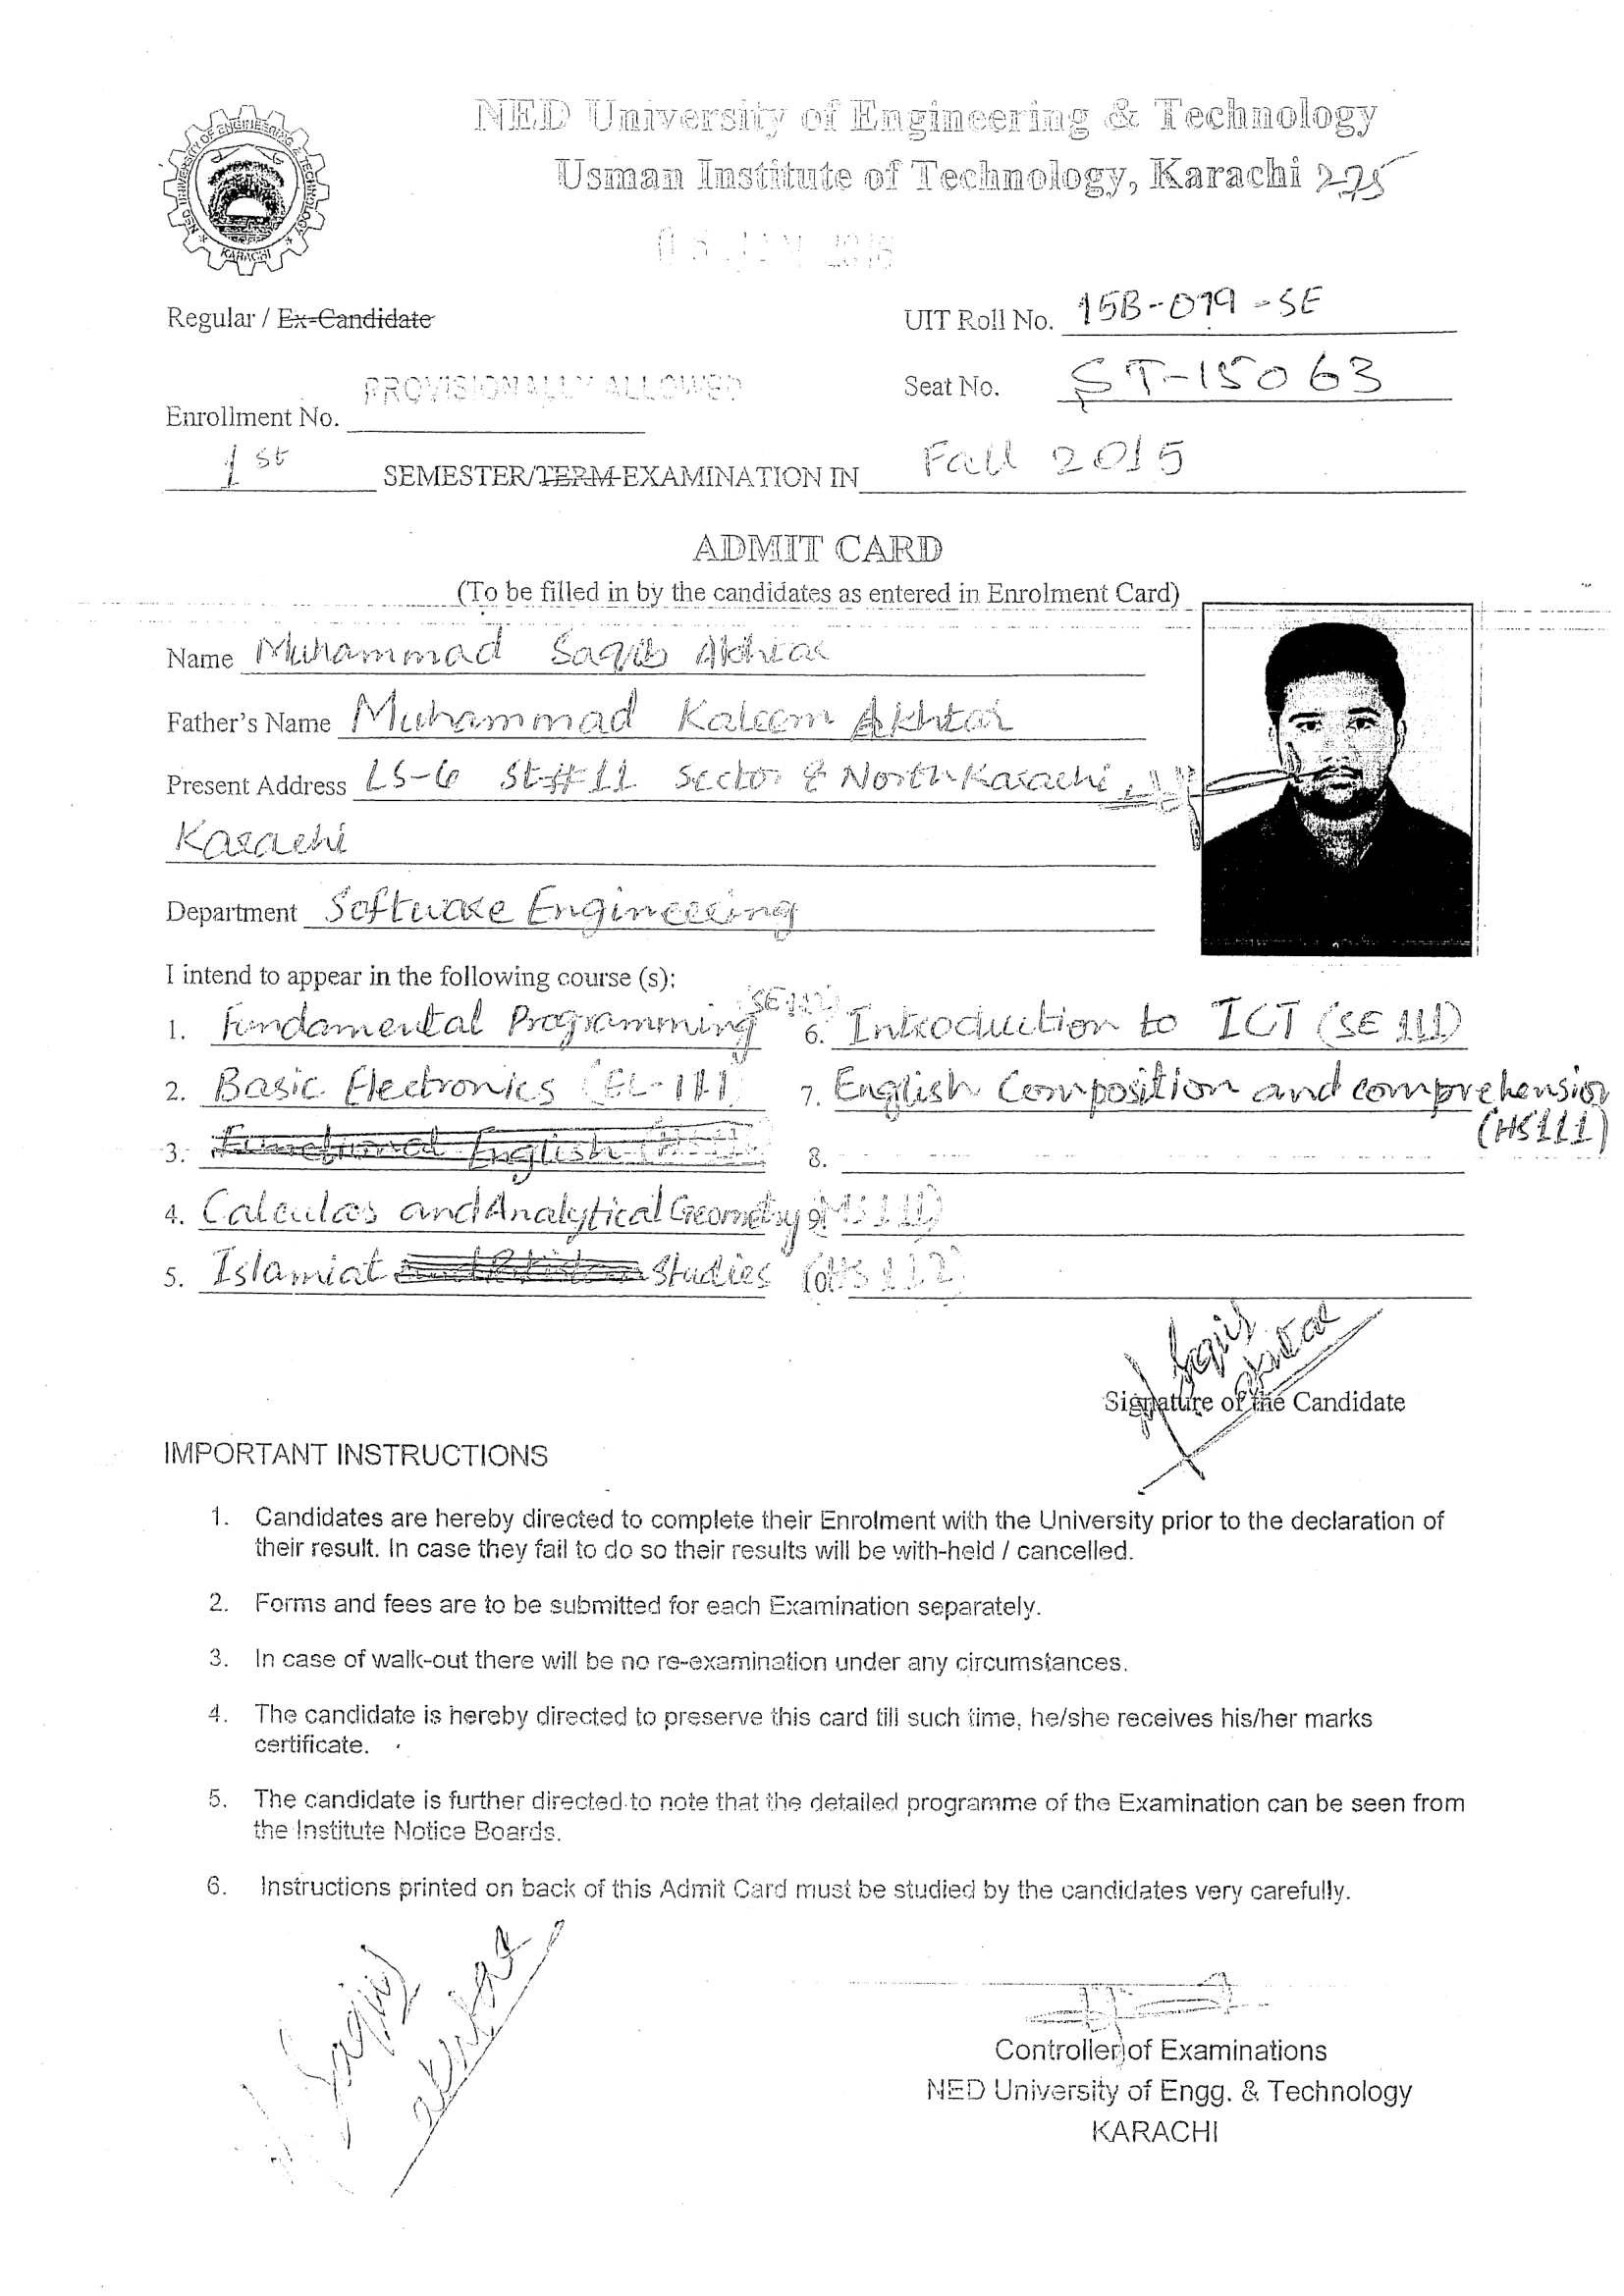 NED University of Engineering & Technology
Usman Institute of Technology, Karachi 275
NED UNIVERSITY OF ENGINEERING & TECHNOLOGY
KARACHI
05 JAN 2016
Regular / Ex-Candidate
UIT Roll No. 15B-079-SE
PROVISIONALLY ALLOWED
Seat No. ST-15063
Enrollment No.
1st SEMESTER/TERM EXAMINATION IN Fall 2015
ADMIT CARD
(To be filled in by the candidates as entered in Enrolment Card)
Name Muhammad Saqib Akhtar
Father's Name Muhammad Kaleem Akhtar
Present Address LS-6 St#11 Sector 8 North Karachi,
Karachi
Department Software Engineering
I intend to appear in the following course (s):
1. Fundamental Programming (SE112) 6. Introduction to ICT (SE 111)
2. Basic Electronics (EL-111) 7. English Composition and comprehension
(HS111)
3. Functional English 8.
4. Calculas and Analytical Geometry (MS 111) 9.
5. Islamiat Studies (HS 112) 10.
M Saqib
Akhtar
Signature of the Candidate
IMPORTANT INSTRUCTIONS
1. Candidates are hereby directed to complete their Enrolment with the University prior to the declaration of
their result. In case they fail to do so their results will be with-held / cancelled.
2. Forms and fees are to be submitted for each Examination separately.
3. In case of walk-out there will be no re-examination under any circumstances.
4. The candidate is hereby directed to preserve this card till such time, he/she receives his/her marks
certificate.
5. The candidate is further directed to note that the detailed programme of the Examination can be seen from
the Institute Notice Boards.
6. Instructions printed on back of this Admit Card must be studied by the candidates very carefully.
M Saqib
Akhtar
Controller of Examinations
NED University of Engg. & Technology
KARACHI